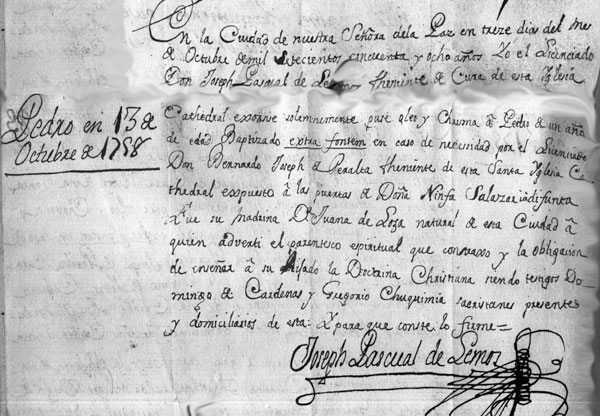 En la Ciudad de nuestra Señora dela Paz en treze dias del mes
de Octubre de mil setecientos cincuenta y ocho años Yo el Licenciado
Don Joseph Pasqual de Lemos theniente de Cura de esta Iglesia
Pedro en 13 de
Octubre de 1758
Cathedral exorsise solemnemente puse oleo y Chrisma â Pedro de un año
de edad Baptizado extra fontem en caso de necesidad por el Licenciado
Don Bernardo Joseph de Peralta theniente de esta Santa Iglesia Ca
thedral expuesto â las puertas de Doña Ninfa Salazar difunta
fue su madrina Da Juana de Loza natural de esta Ciudad â
quien adverti el parentesco espiritual que contraxo y la obligacion
de enseñar â su Ahijado la Doctrina Christiana siendo testigos Do
mingo de Cardenas y Gregorio Chuquimia sacristanes presentes
y domiciliarios de esta: Y para que conste lo firme=
Joseph Pascual de Lemos